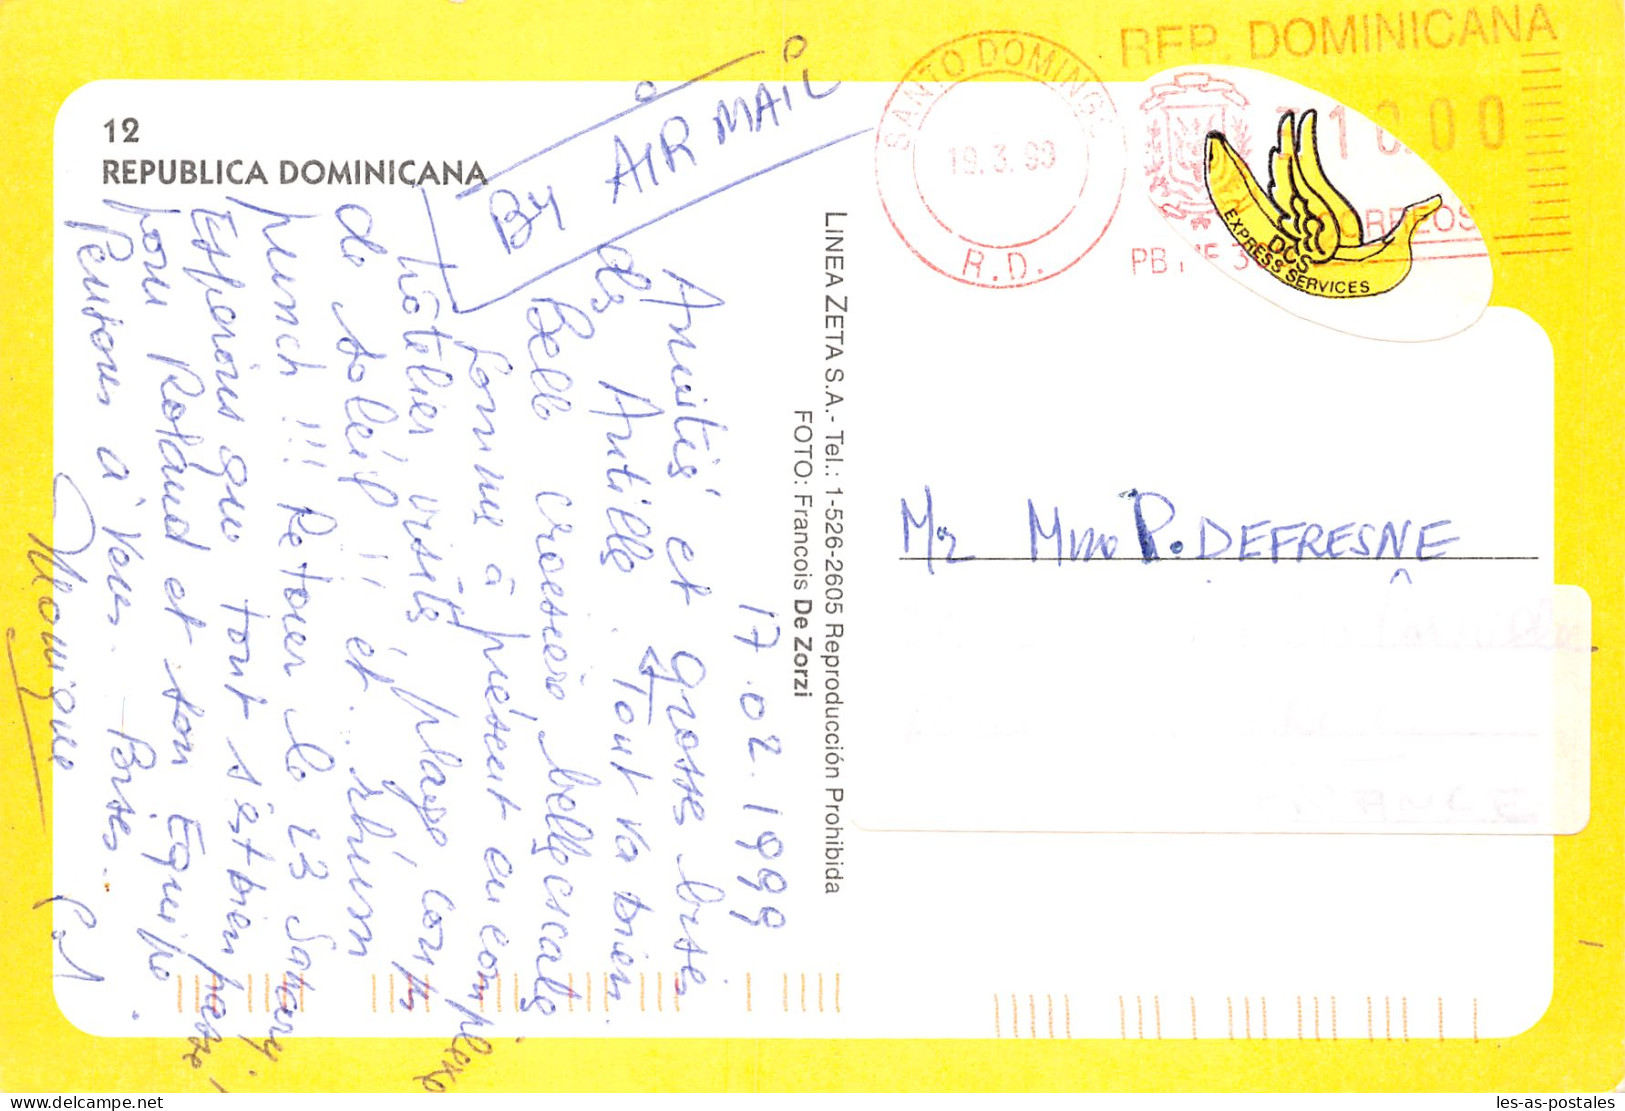 12
REPUBLICA DOMINICANA
BY AIR MAIL
17.02.1999
Amitiés et grosses bises
des Antilles. Tout va bien.
Belle croisière, belles escales
comme à présent en complexe
hôtelier, visites, plage, corps
de soleil !! et.. rhum
punch !!! Retour le 23
Espérons que tout s'est bien passé !
pour Roland et son Equipe
Pensons à vous. Bises...
Monique
LINEA ZETA S.A.- Tel.: 1-526-2605 Reproducción Prohibida
FOTO: Francois De Zorzi
SANTO DOMINGO
19.3.99
R.D.
REP. DOMINICANA
10.00
CORREOS
PB
DCS
EXPRESS SERVICES
Mr Mme P. DEFRESNE
FRANCE
les-as-postales